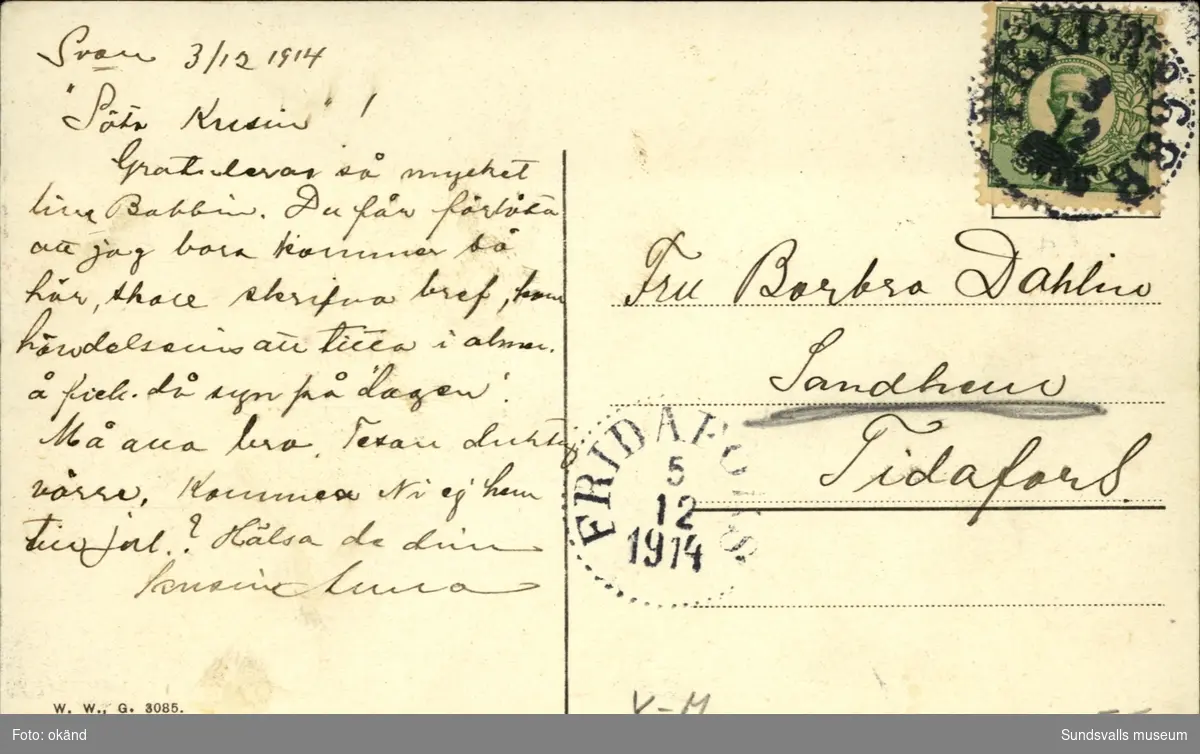 Svan 3/12 1914
"Söta Kusin"!
Gratuleras så mycket
lina Babbin. Du får förlåta
att jag bara kommer så
här, skall skrifva bref, kom
händelsevis att titta i alman.
å fick då syn på "dagen".
Må alla bra. Tesan duktig
värre. Kommer Ni ej hem
till jul.? Hälsa de dina
Kusin Anna
W. W., G. 3085.
PKXP
3
12
Fru Barbro Dahlin
Sandhem
Tidafors.
FRIDAFORS
5
12
1914
V-M
Foto: okänd
Sundsvalls museum